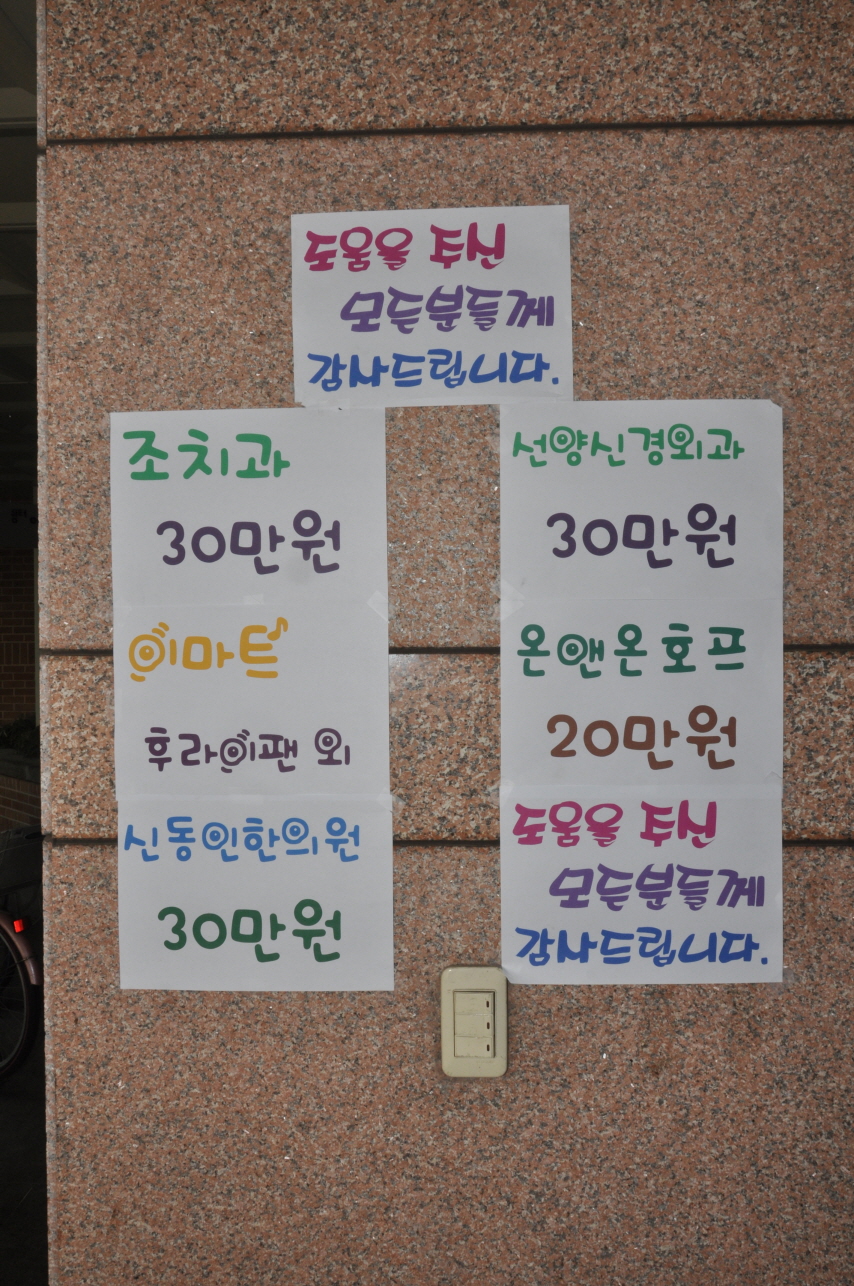 도움을 주신
모든분들께
감사드립니다.
조치과
30만원
이마트
후라이팬 외
신동인한의원
30만원
선양신경외과
30만원
온앤온호프
20만원
도움을 주신
모든분들께
감사드립니다.